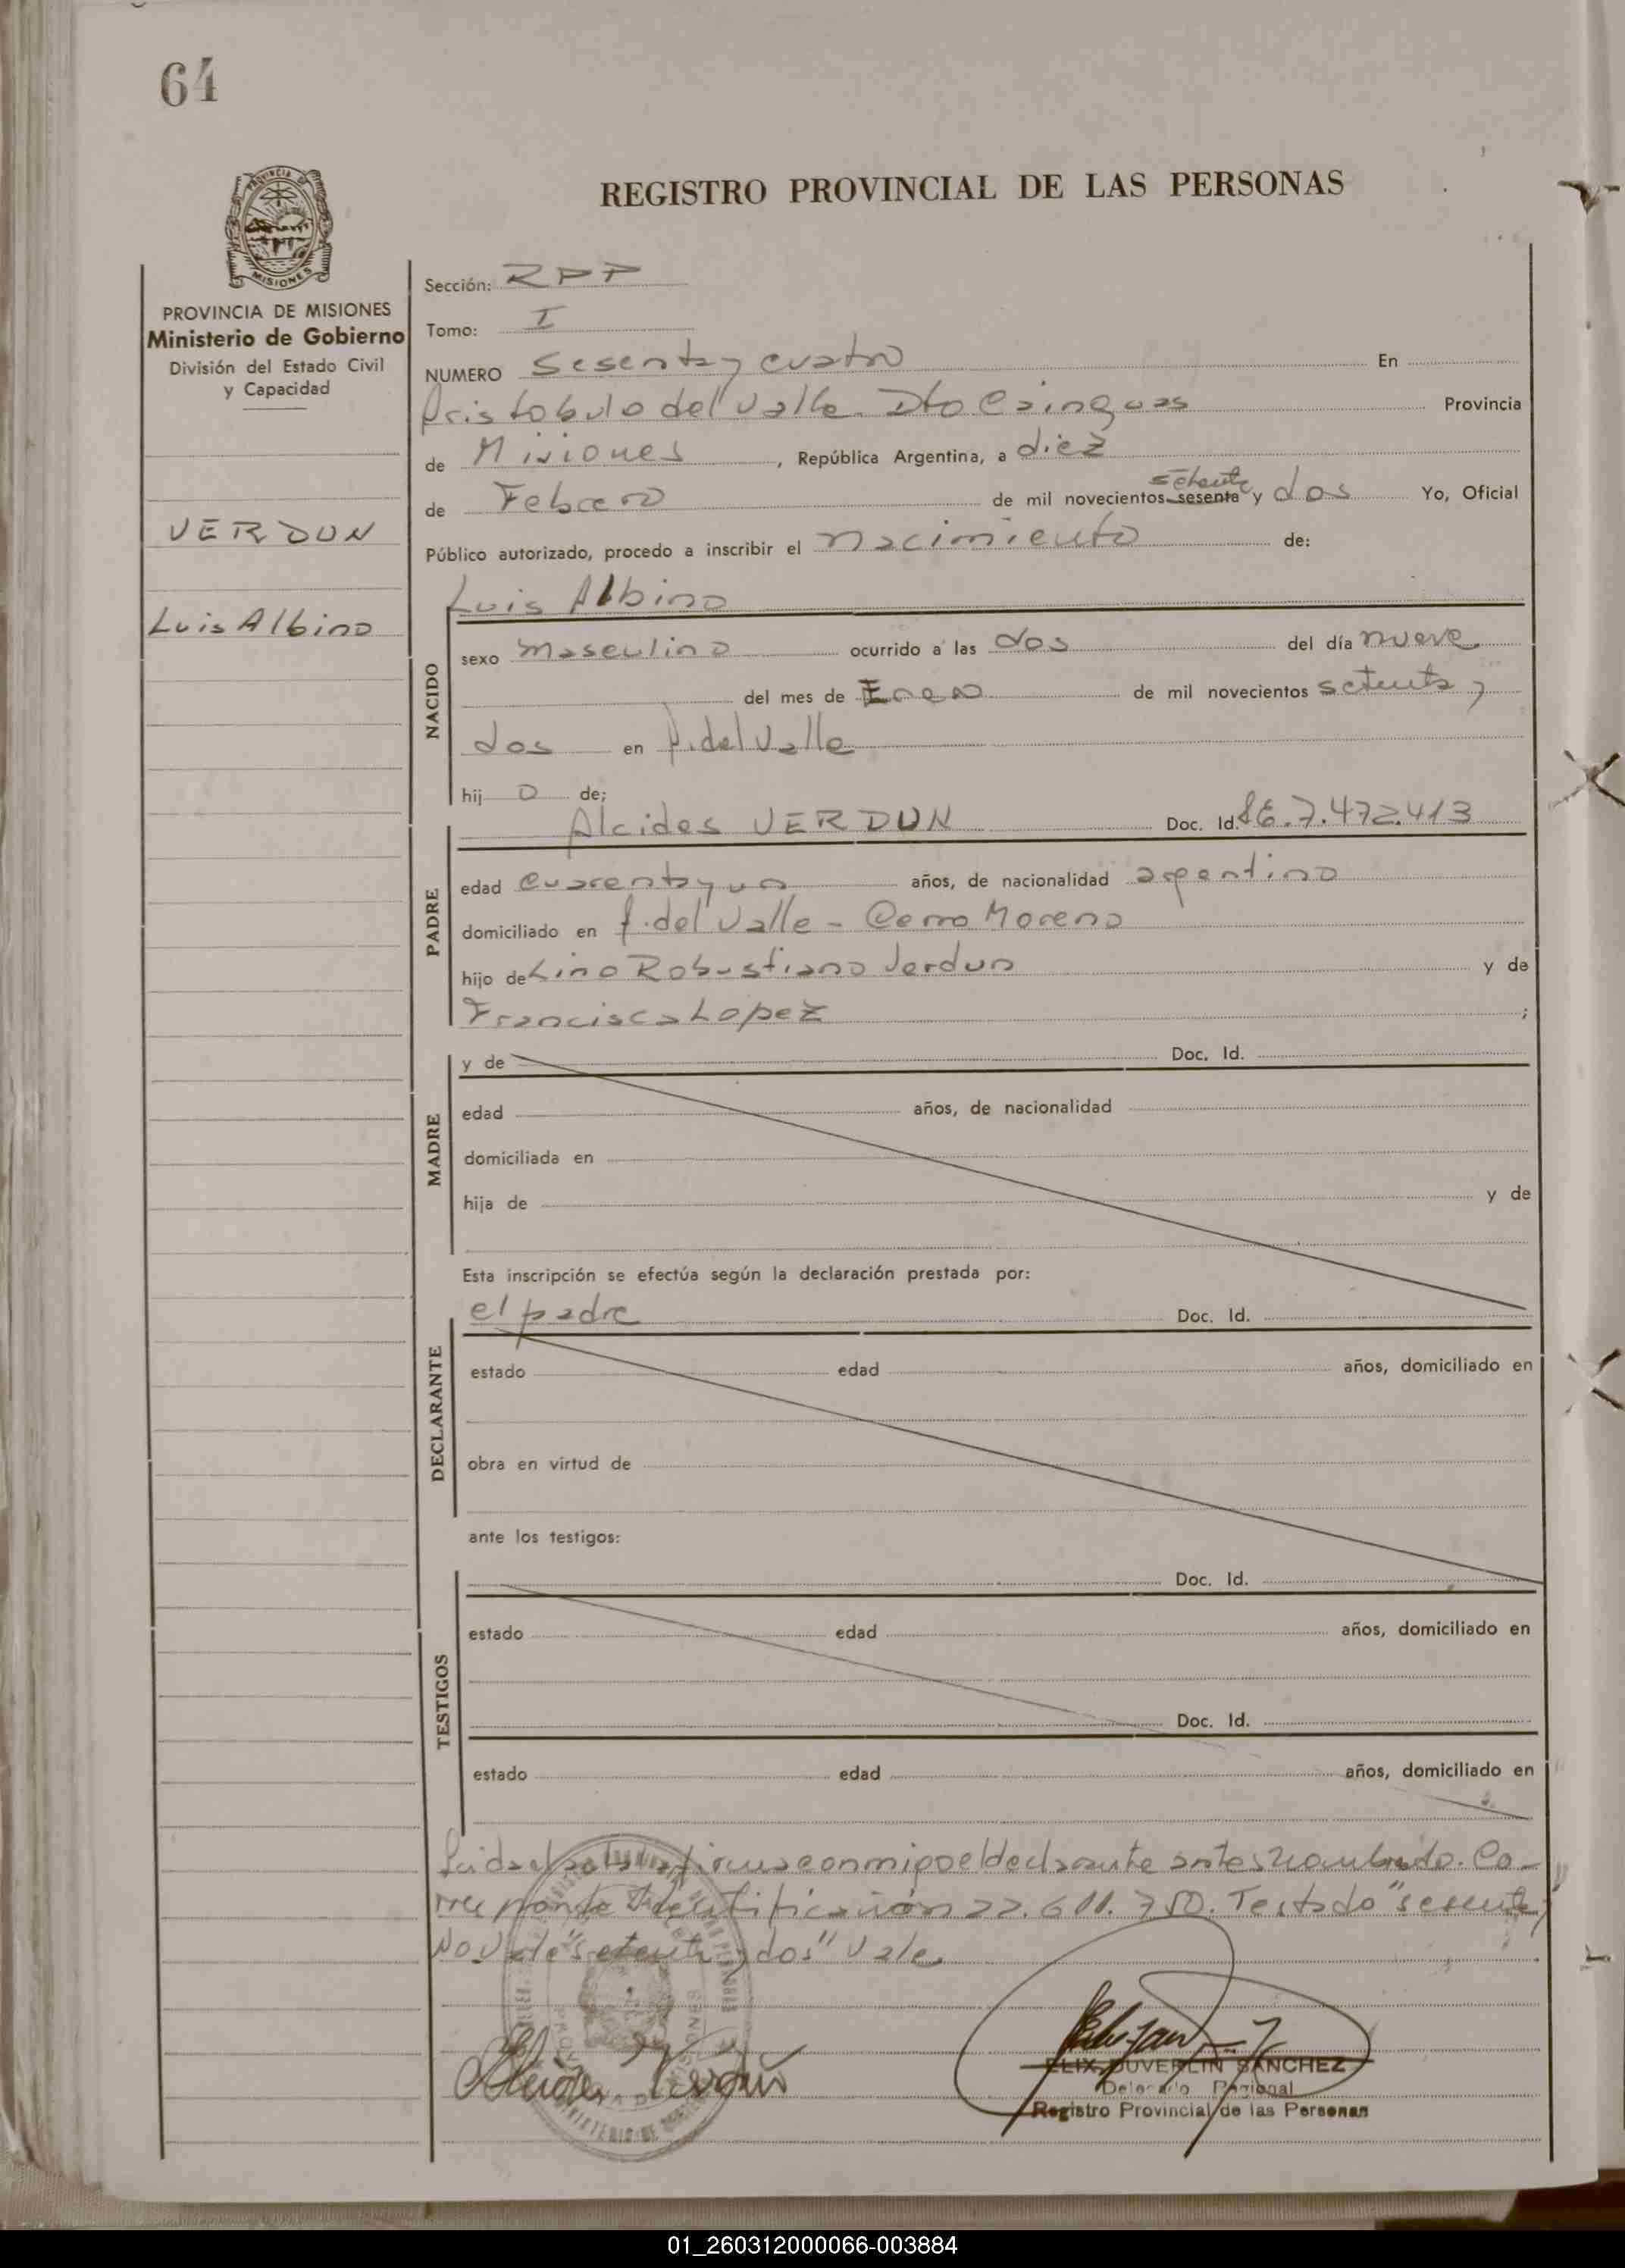 64
PROVINCIA DE MISIONES
REGISTRO PROVINCIAL DE LAS PERSONAS
PROVINCIA DE MISIONES
Ministerio de Gobierno
División del Estado Civil
y Capacidad
VERDUN
Luis Albino
Sección: RPP
Tomo: I
NUMERO Sesenta y cuatro En
Aristobulo del Valle. Dto Cainguas Provincia
de Misiones, República Argentina, a diez
setenta
de Febrero de mil novecientos sesenta y dos Yo, Oficial
Público autorizado, procedo a inscribir el nacimiento de:
Luis Albino
NACIDO
sexo masculino ocurrido a las dos del día nueve
del mes de Enero de mil novecientos setenta y
dos en A. del Valle
hij o de;
Alcides VERDUN Doc. Id. 7.472.413
PADRE
edad cuarenta y un años, de nacionalidad argentino
domiciliado en A. del Valle - Cerro Moreno
hijo de Lino Robustiano Verdun y de
Francisca Lopez ;
MADRE
y de Doc. Id.
edad años, de nacionalidad
domiciliada en
hija de y de
Esta inscripción se efectúa según la declaración prestada por:
el padre Doc. Id.
DECLARANTE
estado edad años, domiciliado en
obra en virtud de
ante los testigos:
TESTIGOS
Doc. Id.
estado edad años, domiciliado en
Doc. Id.
estado edad años, domiciliado en
Leida el acta la firma conmigo el declarante antes nombrado. Co-
rresponde Identificación 22.611.750. Testado "sesenta"
No Vale "setenta y dos" Vale.
Alcides Verdun
ELIX DUVERLIN SANCHEZ
Delegado Regional
Registro Provincial de las Personas
01_260312000066-003884